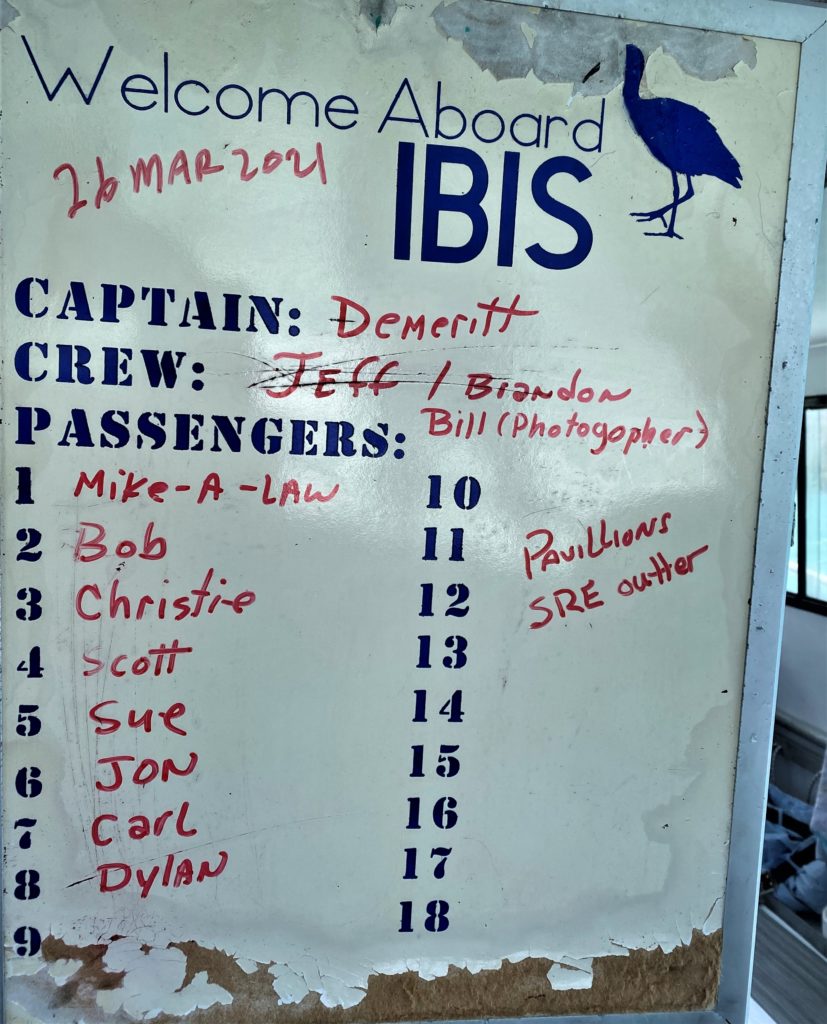 Welcome Aboard
IBIS
26 MAR 2021
CAPTAIN: Demeritt
CREW: Jeff / Brandon
PASSENGERS: Bill (Photogopher)
1 Mike-A-LAW
2 Bob
3 Christie
4 Scott
5 Sue
6 JON
7 Carl
8 DylAN
9
10
11
12
13
14
15
16
17
18
PAvillions
SRE outter